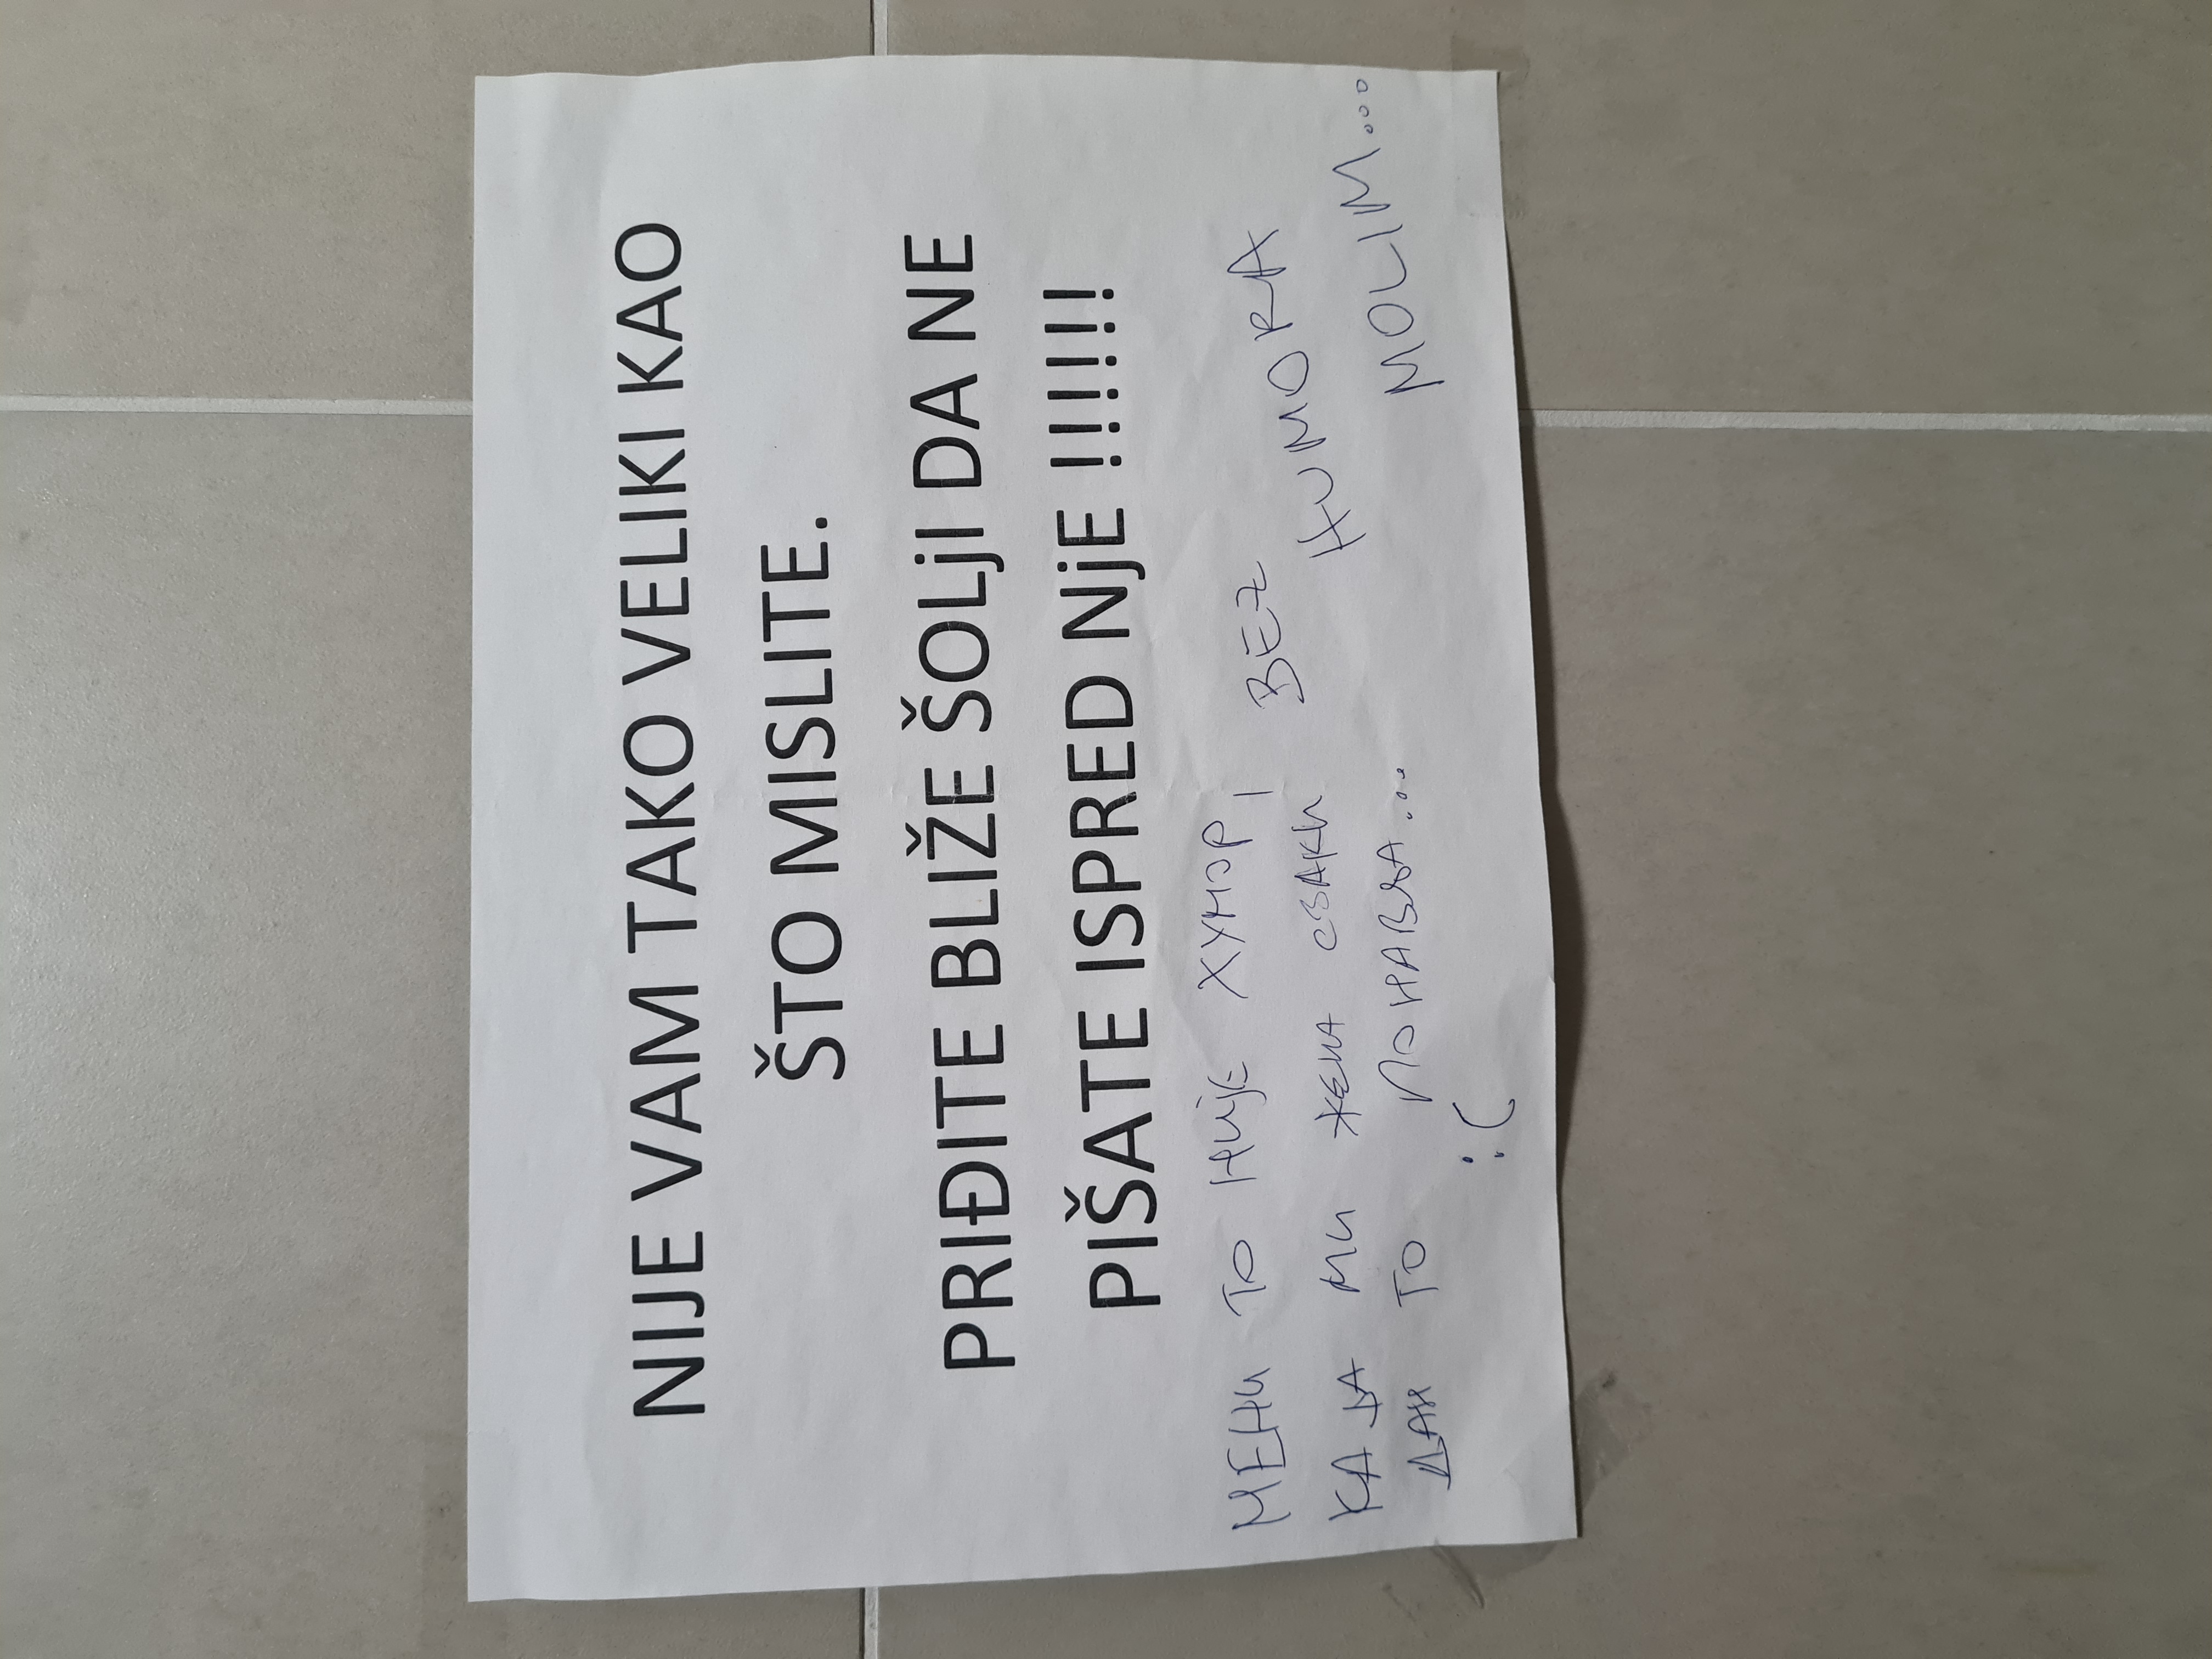 NIJE VAM TAKO VELIKI KAO
ŠTO MISLITE.
PRIĐITE BLIŽE ŠOLjI DA NE
PIŠATE ISPRED NjE !!!!!!!
МЕНИ ТО НИЈЕ ХУМОР,
КАДА МИ ЖЕНА СВАКИ
ДАН ТО ПОНАВЉА...
:(
BEZ
HUMORA
MOLIM...